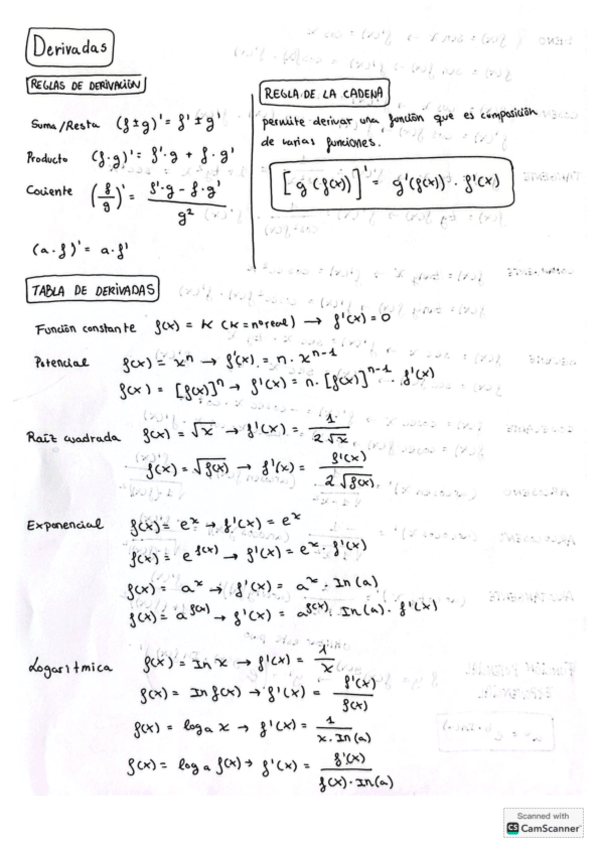 Derivadas
REGLAS DE DERIVACIÓN
Suma/Resta (f±g)' = f' ± g'
Producto (f·g)' = f'·g + f·g'
Cociente (f/g)' = f'·g - f·g' / g²
(a·f)' = a·f'
REGLA DE LA CADENA
permite derivar una función que es composición
de varias funciones.
[g(f(x))]' = g'(f(x))·f'(x)
TABLA DE DERIVADAS
Función constante f(x) = K (K = nº real) → f'(x) = 0
Potencial f(x) = xⁿ → f'(x) = n·xⁿ⁻¹
f(x) = [f(x)]ⁿ → f'(x) = n·[f(x)]ⁿ⁻¹·f'(x)
Raíz cuadrada f(x) = √x → f'(x) = 1 / 2√x
f(x) = √f(x) → f'(x) = f'(x) / 2√f(x)
Exponencial f(x) = eˣ → f'(x) = eˣ
f(x) = e^f(x) → f'(x) = eˣ·f'(x)
f(x) = aˣ → f'(x) = aˣ·In(a)
f(x) = a^f(x) → f'(x) = a^f(x)·In(a)·f'(x)
Logarítmica f(x) = In x → f'(x) = 1/x
f(x) = In f(x) → f'(x) = f'(x) / f(x)
f(x) = log a x → f'(x) = 1 / x·In(a)
f(x) = log a f(x) → f'(x) = f'(x) / f(x)·In(a)
Scanned with
CS CamScanner